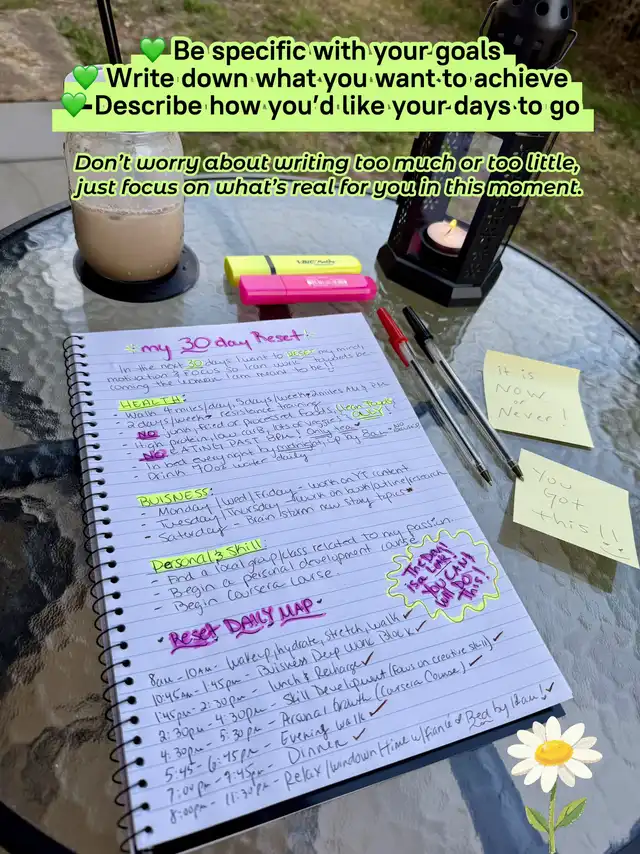 💚 Be specific with your goals
💚 Write down what you want to achieve
💚 Describe how you'd like your days to go
Don't worry about writing too much or too little,
just focus on what's real for you in this moment.
BIC
my 30 day Reset
In the next 30 days I want to reset my mind,
motivation & focus so I can work towards be-
coming the woman I am meant to be!
HEALTH:
- Walk 4 miles/day, 5days/week
- 2 days/week - resistance training
- NO junk, fried or processed foods, clean foods ONLY!!
- High protein, low carb, lots of veggies
- NO EATING PAST 8PM!
- In bed every night by
- Drink 70oz water daily
BUISNESS:
- Monday/Wed/Friday - work on YT content
- Tuesday/Thursday - work on book/outline/research
- Saturday - Brainstorm new story topics
Personal & Skill
- Find a local group/class related to my passion.
- Begin a personal development course
- Begin Coursera Course.
YOU CAN & WILL DO THIS!
Reset DAILY MAP
8am - 10am - Wakeup, hydrate, stretch, walk ✓
10:45am - 1:45pm - Buisness Deep Work Block ✓
1:45pm - 2:30pm - lunch & Recharge ✓
2:30pm - 4:30pm - Skill Development (focus on creative skill) ✓
4:30pm - 5:30pm - Personal Growth (Coursera Course) ✓
5:45 - 6:45pm - Evening Walk ✓
7:00pm - 7:45pm - Dinner ✓
8:00pm - 11:30pm - Relax/windown time w/ & Bed by 12am! ✓
it is
NOW
or
Never!
You
Got
this!!